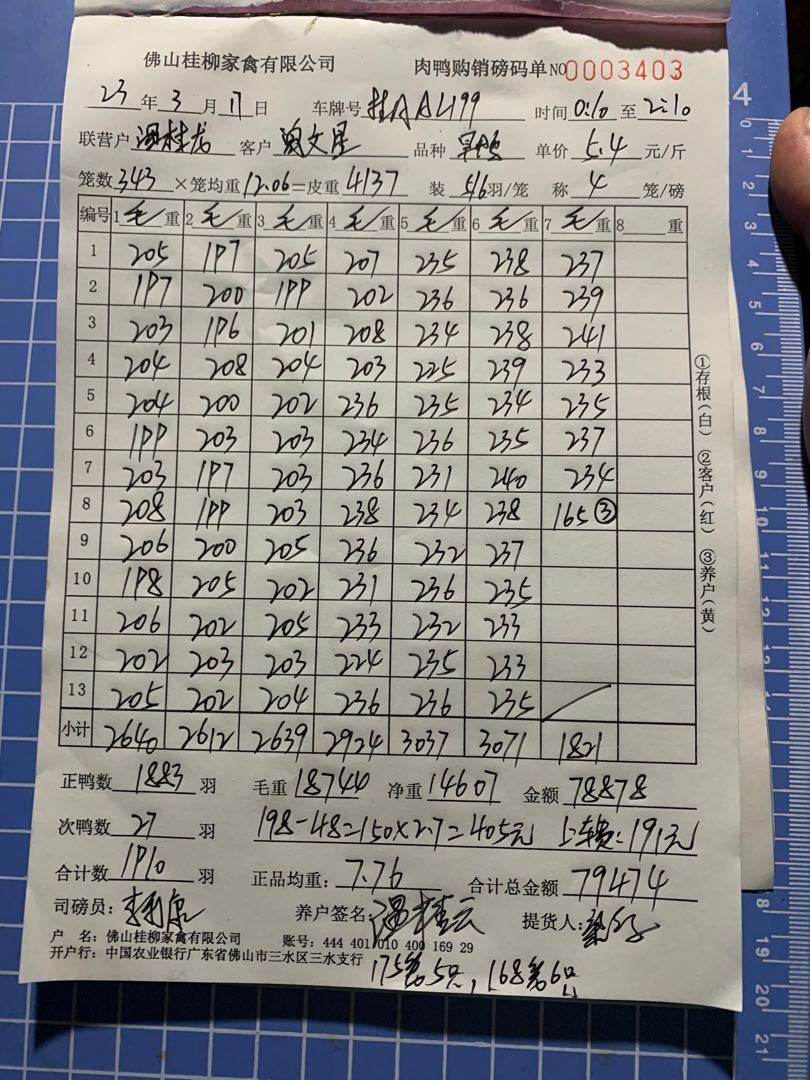 佛山桂柳家禽有限公司 肉鸭购销磅码单 NO 0003403
23 年 3 月 17 日 车牌号 桂AAL199 时间 0:10 至 2:10
联营户 温桂龙 客户 文星 品种 单价 5.4 元/斤
笼数 343 ×笼均重 12.06 =皮重 4137 装 5/6 羽/笼 称 4 笼/磅
编号 1 毛 重 2 毛 重 3 毛 重 4 毛 重 5 毛 重 6 毛 重 7 毛 重 8 重
1 205 197 205 207 235 238 237
2 197 200 199 202 236 236 239
3 203 196 201 208 234 238 241
4 204 208 204 203 225 239 233
5 204 200 202 236 235 234 235
6 199 203 203 234 236 235 237
7 203 197 203 236 231 240 234
8 208 199 203 238 234 238 165 ③
9 206 200 205 236 232 237
10 198 205 202 231 236 235
11 206 202 205 233 232 233
12 202 203 203 224 235 233
13 205 202 204 236 236 235
小计 2640 2612 2639 2924 3037 3071 1821
①存根(白) ②客户(红) ③养户(黄)
正鸭数 1883 羽 毛重 18744 净重 14607 金额 78878
次鸭数 27 羽 198-48=150×2.7=405元 上车费:191元
合计数 1910 羽 正品均重: 7.76 合计总金额 79474
司磅员: 养户签名: 温桂云 提货人:
户 名: 佛山桂柳家禽有限公司 账号: 444 401 010 400 169 29
开户行: 中国农业银行广东省佛山市三水区三水支行
175笼5只, 168笼6只